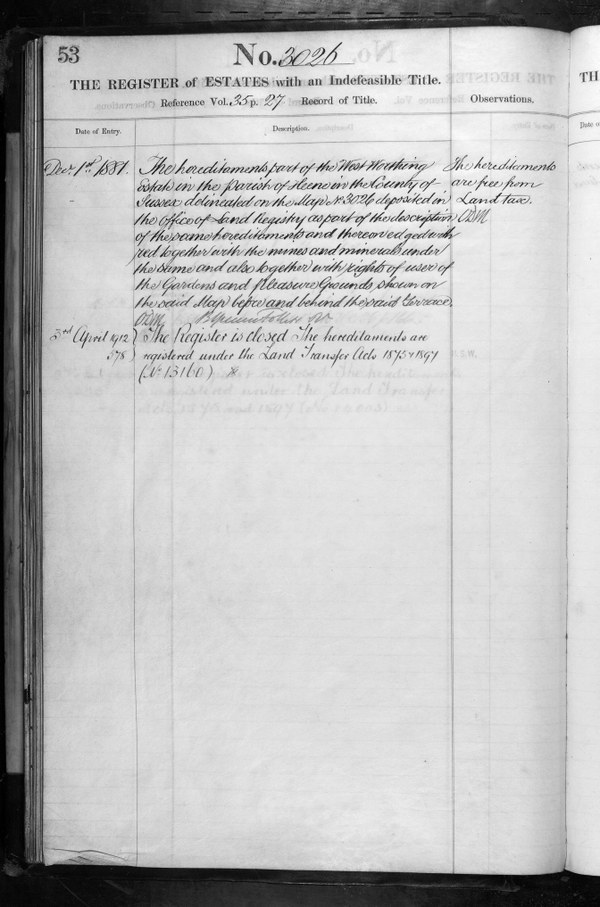 53
No. 3026
THE REGISTER of ESTATES with an Indefeasible Title.
Reference Vol. 35 p. 27 Record of Title.
Observations.
Date of Entry.
Description.
Decr 1st 1881.
The hereditaments part of the West Worthing
Estate in the Parish of Heene in the County of
Sussex delineated on the Map No. 3026 deposited in
the Office of Land Registry as part of the description
of the same hereditaments and thereon edged with
red together with the mines and minerals under
the same and also together with rights of user of
the Gardens and Pleasure Grounds shown on
the said Map before and behind the said Terrace.
The hereditaments
are free from
Land tax.
3rd April 1912
578
The Register is closed The hereditaments are
registered under the Land Transfer Acts 1875 & 1897
(No 13160)
TH
Da